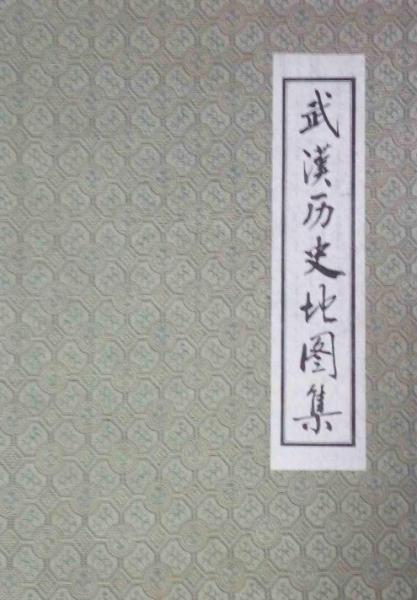 武漢历史地图集